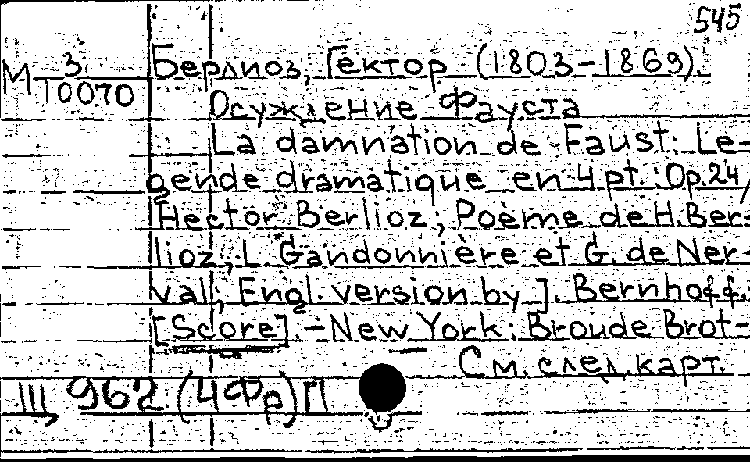 545
М З. Берлиоз, Гектор (1803-1869).
10070
Осуждение Фауста
La damnation de Faust: Le-
gende dramatique en 4 pt.: Op.24/
Hector Berlioz; Poème de H. Ber-
lioz, L. Gandonnière et G. de Ner-
val; Engl. version by J. Bernhoff.
[Score]. – New York: Broude Brot-
См. след. карт.
Щ 962.(4Фр)П